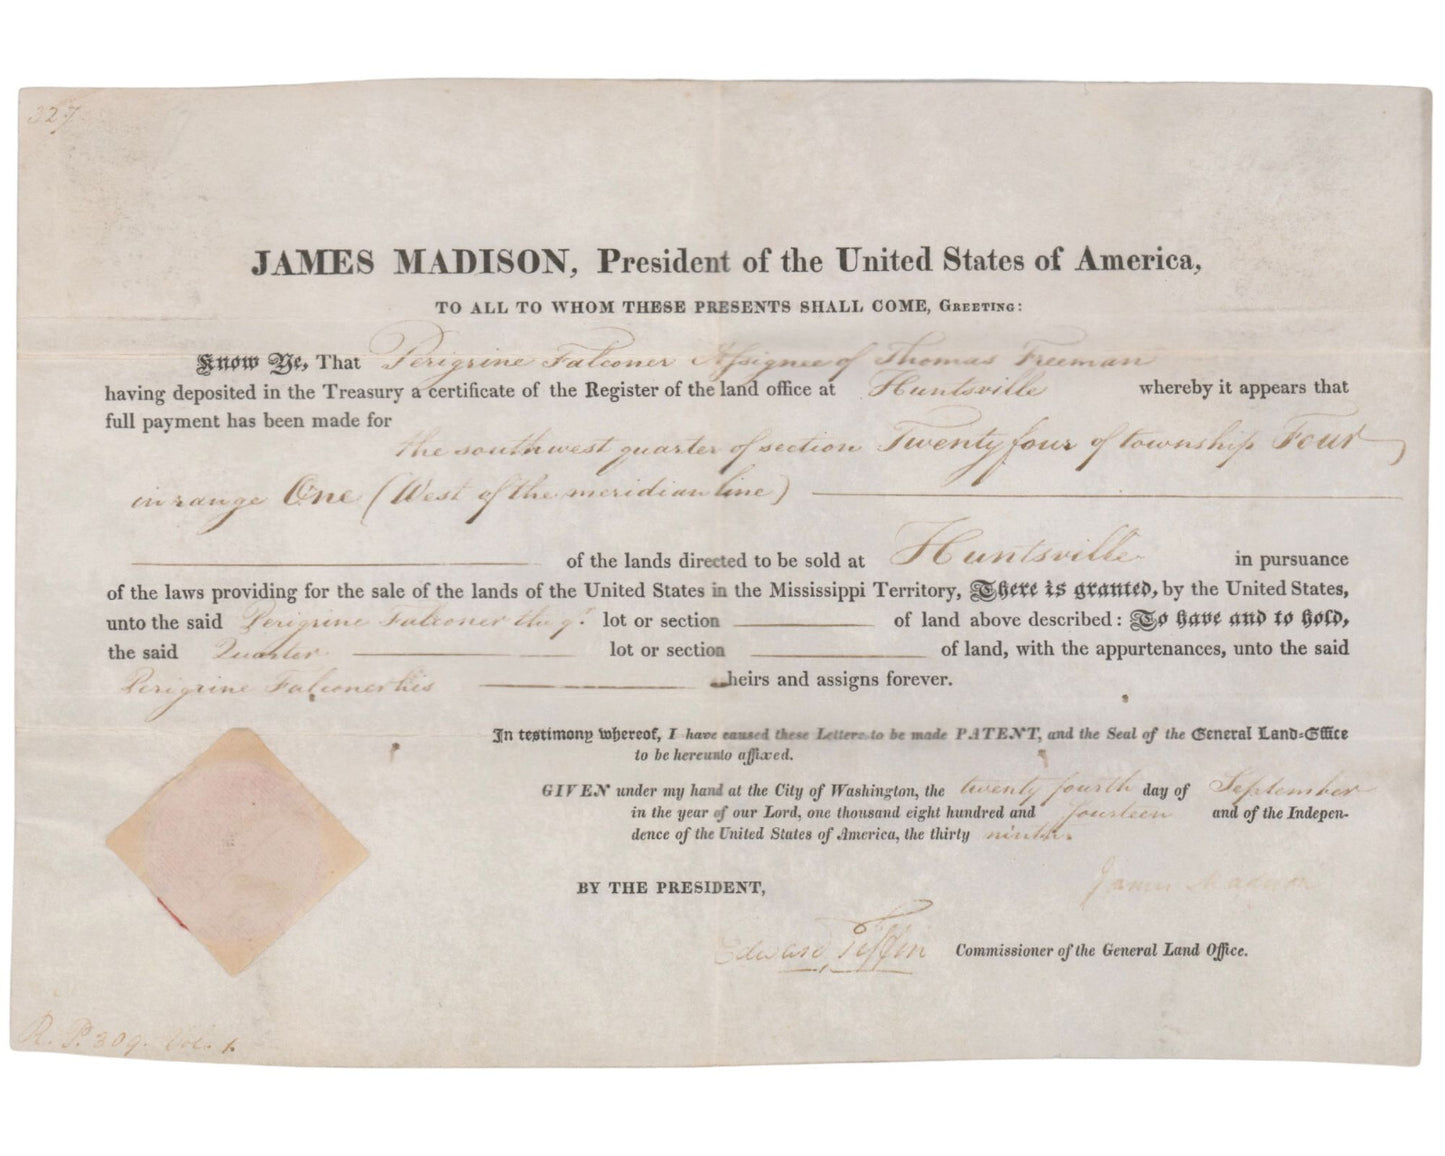 327
JAMES MADISON, President of the United States of America,
TO ALL TO WHOM THESE PRESENTS SHALL COME, GREETING:
Know Ye, That Perigrine Falconer Assignee of Thomas Freeman
having deposited in the Treasury a certificate of the Register of the land office at Huntsville whereby it appears that
full payment has been made for
the southwest quarter of section Twenty four of township Four
in range One (West of the meridian line)
of the lands directed to be sold at Huntsville in pursuance
of the laws providing for the sale of the lands of the United States in the Mississippi Territory, There is granted, by the United States,
unto the said Perigrine Falconer the qr. lot or section of land above described: To have and to hold,
the said Quarter lot or section of land, with the appurtenances, unto the said
Perigrine Falconer his heirs and assigns forever.
In testimony whereof, I have caused these Letters to be made PATENT, and the Seal of the General Land-Office
to be hereunto affixed.
GIVEN under my hand at the City of Washington, the twenty fourth day of September
in the year of our Lord, one thousand eight hundred and fourteen and of the Indepen-
dence of the United States of America, the thirty ninth.
BY THE PRESIDENT, James Madison
Edward Tiffin Commissioner of the General Land Office.
R. P. 309. Vol. 1.